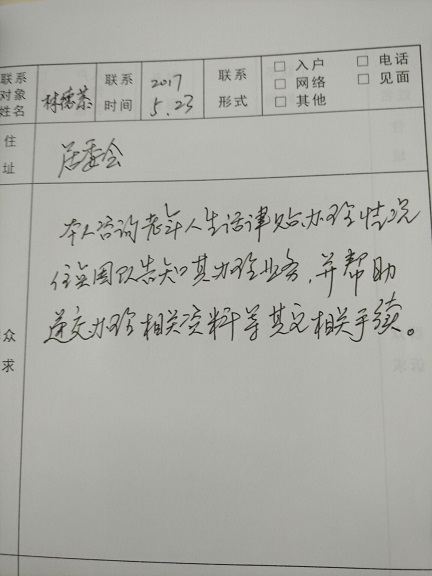 联系对象姓名 林德荼 联系时间 2017 5.23 联系形式 □ 入户 □ 电话
□ 网络 □ 见面
□ 其他
住址 居委会
本人咨询老年人生活津贴办理情况
告知其办理业务，并帮助
递交办理相关资料等其它相关手续。
众
求